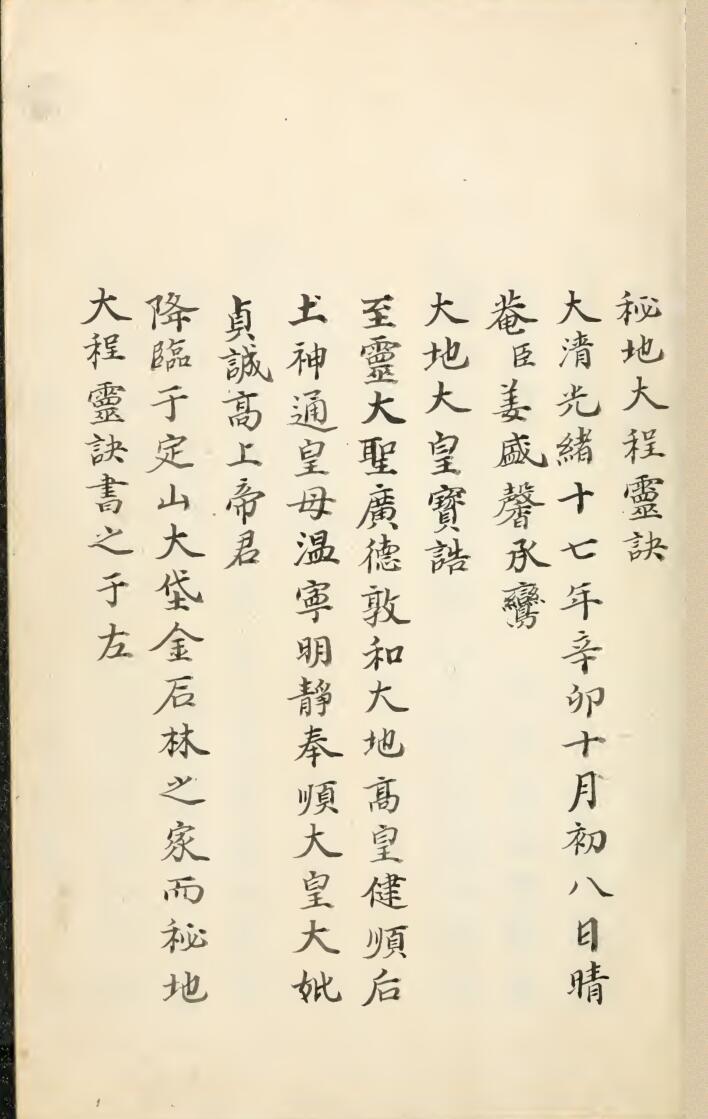 秘地大程靈訣
大清光緒十七年辛卯十月初八日晴
菴臣姜盛馨承鸞
大地大皇寶誥
至靈大聖廣德敦和大地高皇健順后
土神通皇母温寧明靜奉順大皇大妣
貞誠高上帝君
降臨于定山大垈金石林之家而秘地
大程靈訣書之于左